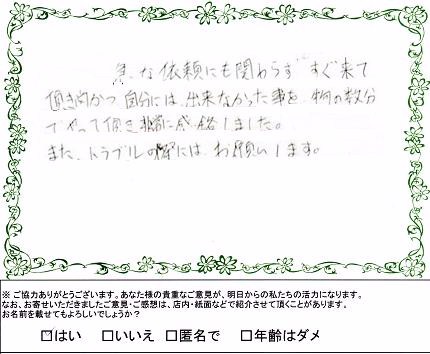 急な依頼にも関わらず すぐ来て
頂き向かつ 自分には、出来なかった事を、物の数分
でやって頂き 非常に感銘しました。
また、トラブルの際には、お願いします。
※ ご協力ありがとうございます。あなた様の貴重なご意見が、明日からの私たちの活力になります。
なお、お寄せいただきましたご意見・ご感想は、店内・紙面などで紹介させて頂くことがあります。
お名前を載せてもよろしいでしょうか？
☑はい □いいえ □匿名で □年齢はダメ